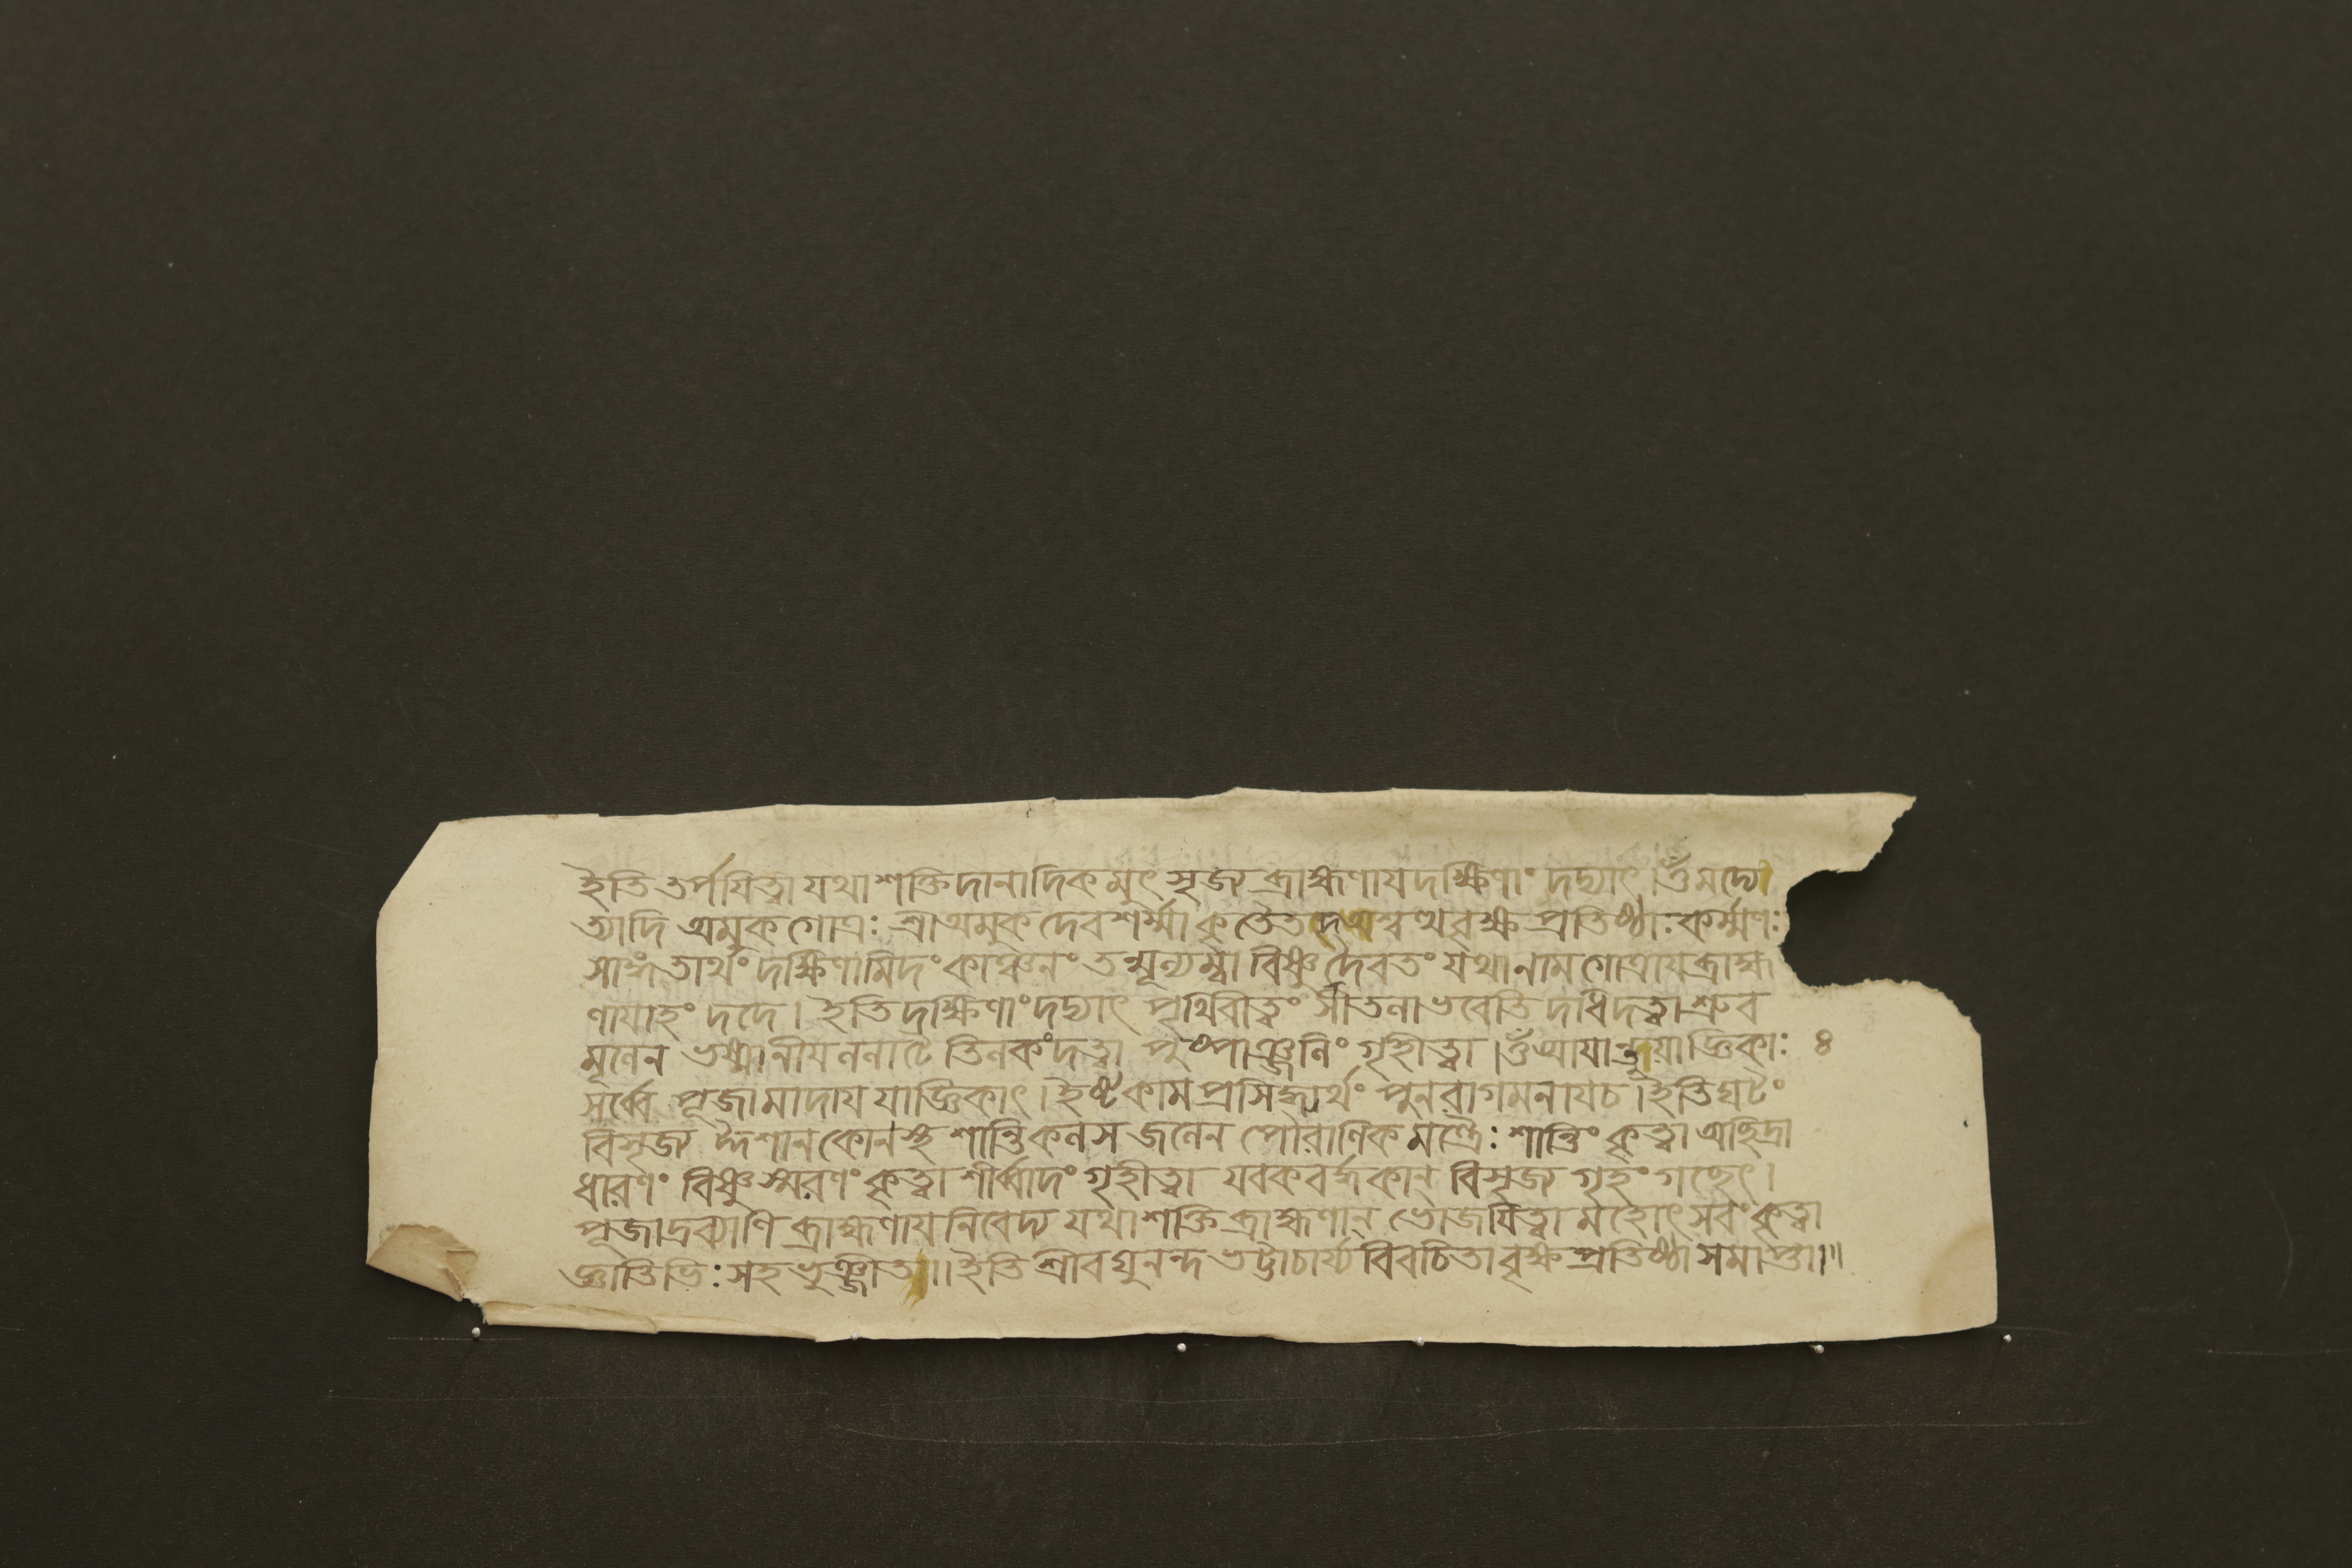 ইতি তর্পযিত্বা যথাশক্তিদানাদিকমুৎসৃজ্য ব্রাহ্মণায দক্ষিণাং দদ্যাৎ।ওঁমদ্যে
ত্যাদি অমুকগোত্রঃ শ্রীঅমুকদেবশর্ম্মা কৃতৈতদশ্বত্থবৃক্ষপ্রতিষ্ঠাঃকর্ম্মণঃ
সাঙ্গতার্থং দক্ষিণামিদং কাঞ্চনং তন্মূল্যম্বা বিষ্ণুর্দৈবতং যথানামগোত্রায ব্রাহ্ম
ণাযাহং দদে। ইতি দক্ষিণাং দদ্যাৎ পৃথিবীত্বং শীতলাভবেতি দধিদত্বা শ্রুব
মূলেন ভস্মানীয ললাটে তিলকংদত্বা পুষ্পাঞ্জলিং গৃহীত্বা।ওঁআযান্তুযাজ্ঞিকাঃ ৪
সর্ব্বে পূজামাদায যাজ্ঞিকাৎ। ইষ্টকামপ্রসিদ্ধ্যর্থং পুনরাগমনাযচ।ইতিঘটং
বিসৃজ্য ঈশানকোনস্থ শান্তিকলসজলেন পৌরাণিকমন্ত্রৈঃ শান্তিং কৃত্বা অছিদ্রা
ধারণং বিষ্ণুস্মরণং কৃত্বাশীর্ব্বাদং গৃহীত্বা যবকবর্দ্ধকান্ বিসৃজ্য গৃহং গচ্ছেৎ।
পূজাদ্রব্যাণি ব্রাহ্মণায নিবেদ্য যথাশক্তি ব্রাহ্মণান্ ভোজযিত্বা মহোৎসবং কৃত্বা
জ্ঞাতিভিঃ সহ ভুঞ্জীত॥ইতি শ্রীরঘুনন্দ ভট্টাচার্য্যবিরচিতা বৃক্ষপ্রতিষ্ঠা সমাপ্তা।॥